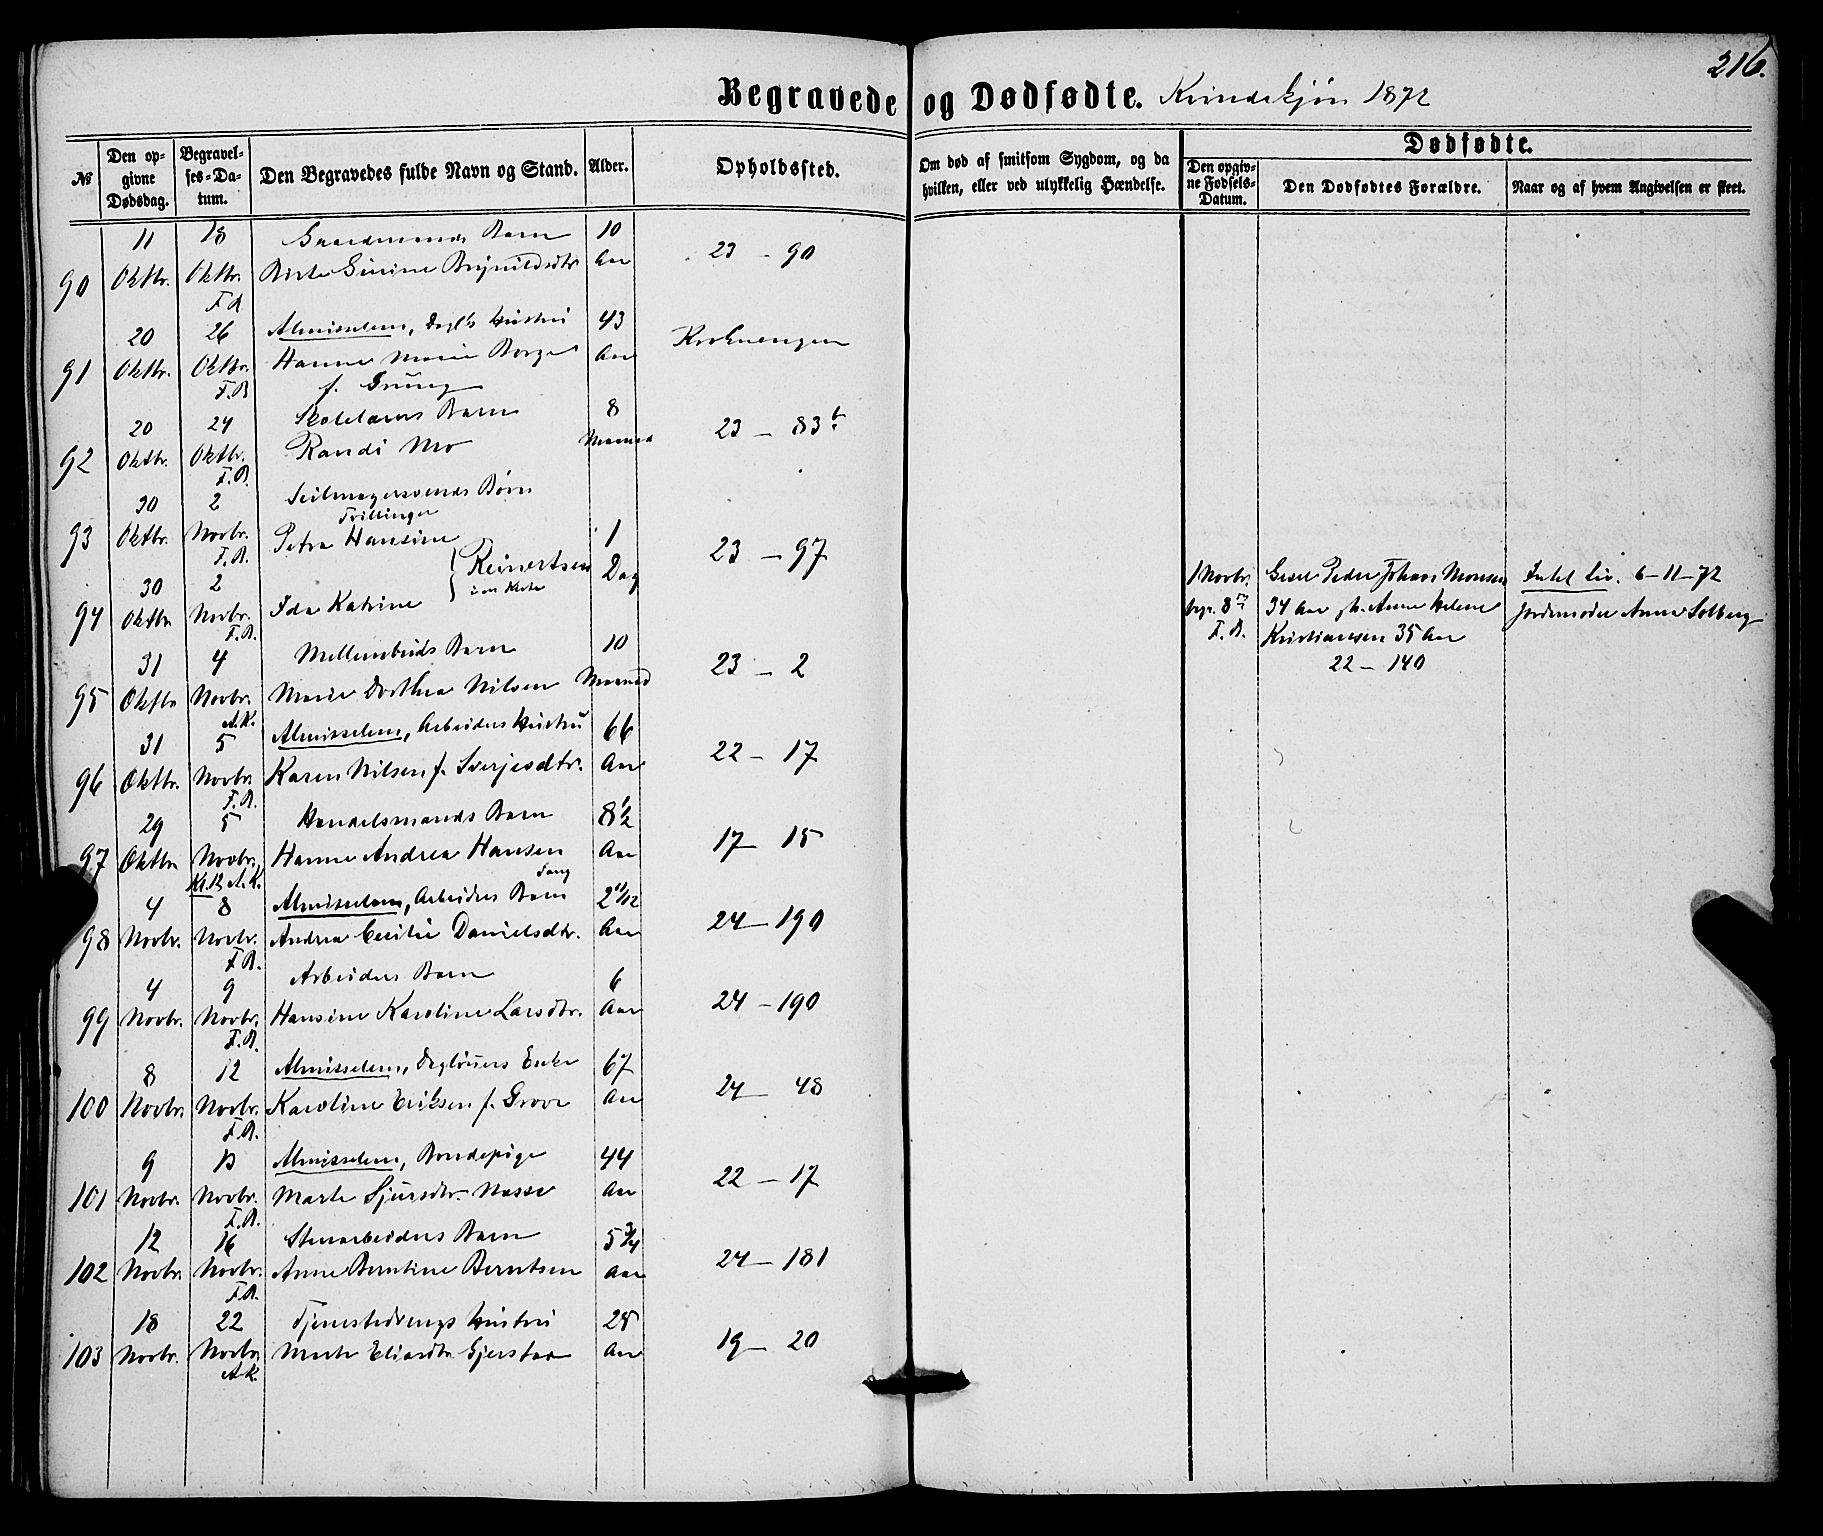 216.
Begravede og Dødfødte. Kvindekjøn 1872
Dødfødte.
№
Den opgivne Dødsdag.
Begravelses-Datum.
Den Begravedes fulde Navn og Stand.
Alder.
Opholdssted.
Om død af smitsom Sygdom, og da hvilken, eller ved ulykkelig Hændelse.
Den opgivne Fødsels-Datum.
Den Dødfødtes Forældre.
Naar og af hvem Angivelsen er skeet.
11 18 Gaardmands Barn 10
90 Oktbr. Oktbr. Birte Serine Brynildsdtr Aar 23 – 90
F.B.
20 26 Almisselem, Dagl's Hustru 43
91 Oktbr. Oktbr. Hanne Marie Aar
F.B. f. Grung
20 24 Skolelærers Barn 8
92 Oktbr. Oktbr. Randi Mo Maaned 23 – 83b
F.B.
30 2 Seilmagersvends Børn
Tvillinger
93 Oktbr. Novbr. Petra Hansine 1
F.B. Reinertsen Dag 23 – 97
30 2
94 Oktbr Novbr. Ida Katrine
F.B.
31 4 Barn 10
95 Oktbr Novbr. Marie Dorthea Nilsen Maaned 23 – 2
A.K.
31 5 Almisselem, Arbeiders Hustru 66
96 Oktbr. Novbr. Karen Nilsen f. Aar 22 – 17
F.B.
29 5 Handelsmands Barn 8 1/2
97 Oktbr Novbr. Hanne Andrea Hansen Aar 17 15
A.K.
4 8 Almisselem, Arbeiders Barn 2 11/12
98 Novbr. Novbr. Andrea Cecilie Danielsdtr. Aar 24 – 190
F.B.
4 9 Arbeiders Barn 6
99 Novbr. Novbr. Hansine Karoline Larsdtr. Aar 24 – 190
F.B.
8 12 Almisselem, Dagleiers Enke 67
100 Novbr. Novbr. Karoline Eriksen f. Grove Aar 24 – 48
F.B.
9 13 Almisselem, Bondepige 44
101 Novbr. Novbr. Marte Sjursdtr. Aar 22 – 17
F.B.
12 16 Stenarbeiders Barn 5 3/4
102 Novbr. Novbr. Anne Berntine Berntsen Aar 24 – 181
F.B.
18 22 Tjenestedrengs Hustru 28
103 Novbr. Novbr Marte Gjerstad Aar 19 – 20
A.K.
1 Novbr. Gesel Peder Johan Monsen Intet Liv. 6-11-72
begr. 8de 34 Aar Anne Helene Jordemoder Anne Solberg
F.B. Kristiansen 35 Aar
22 – 140